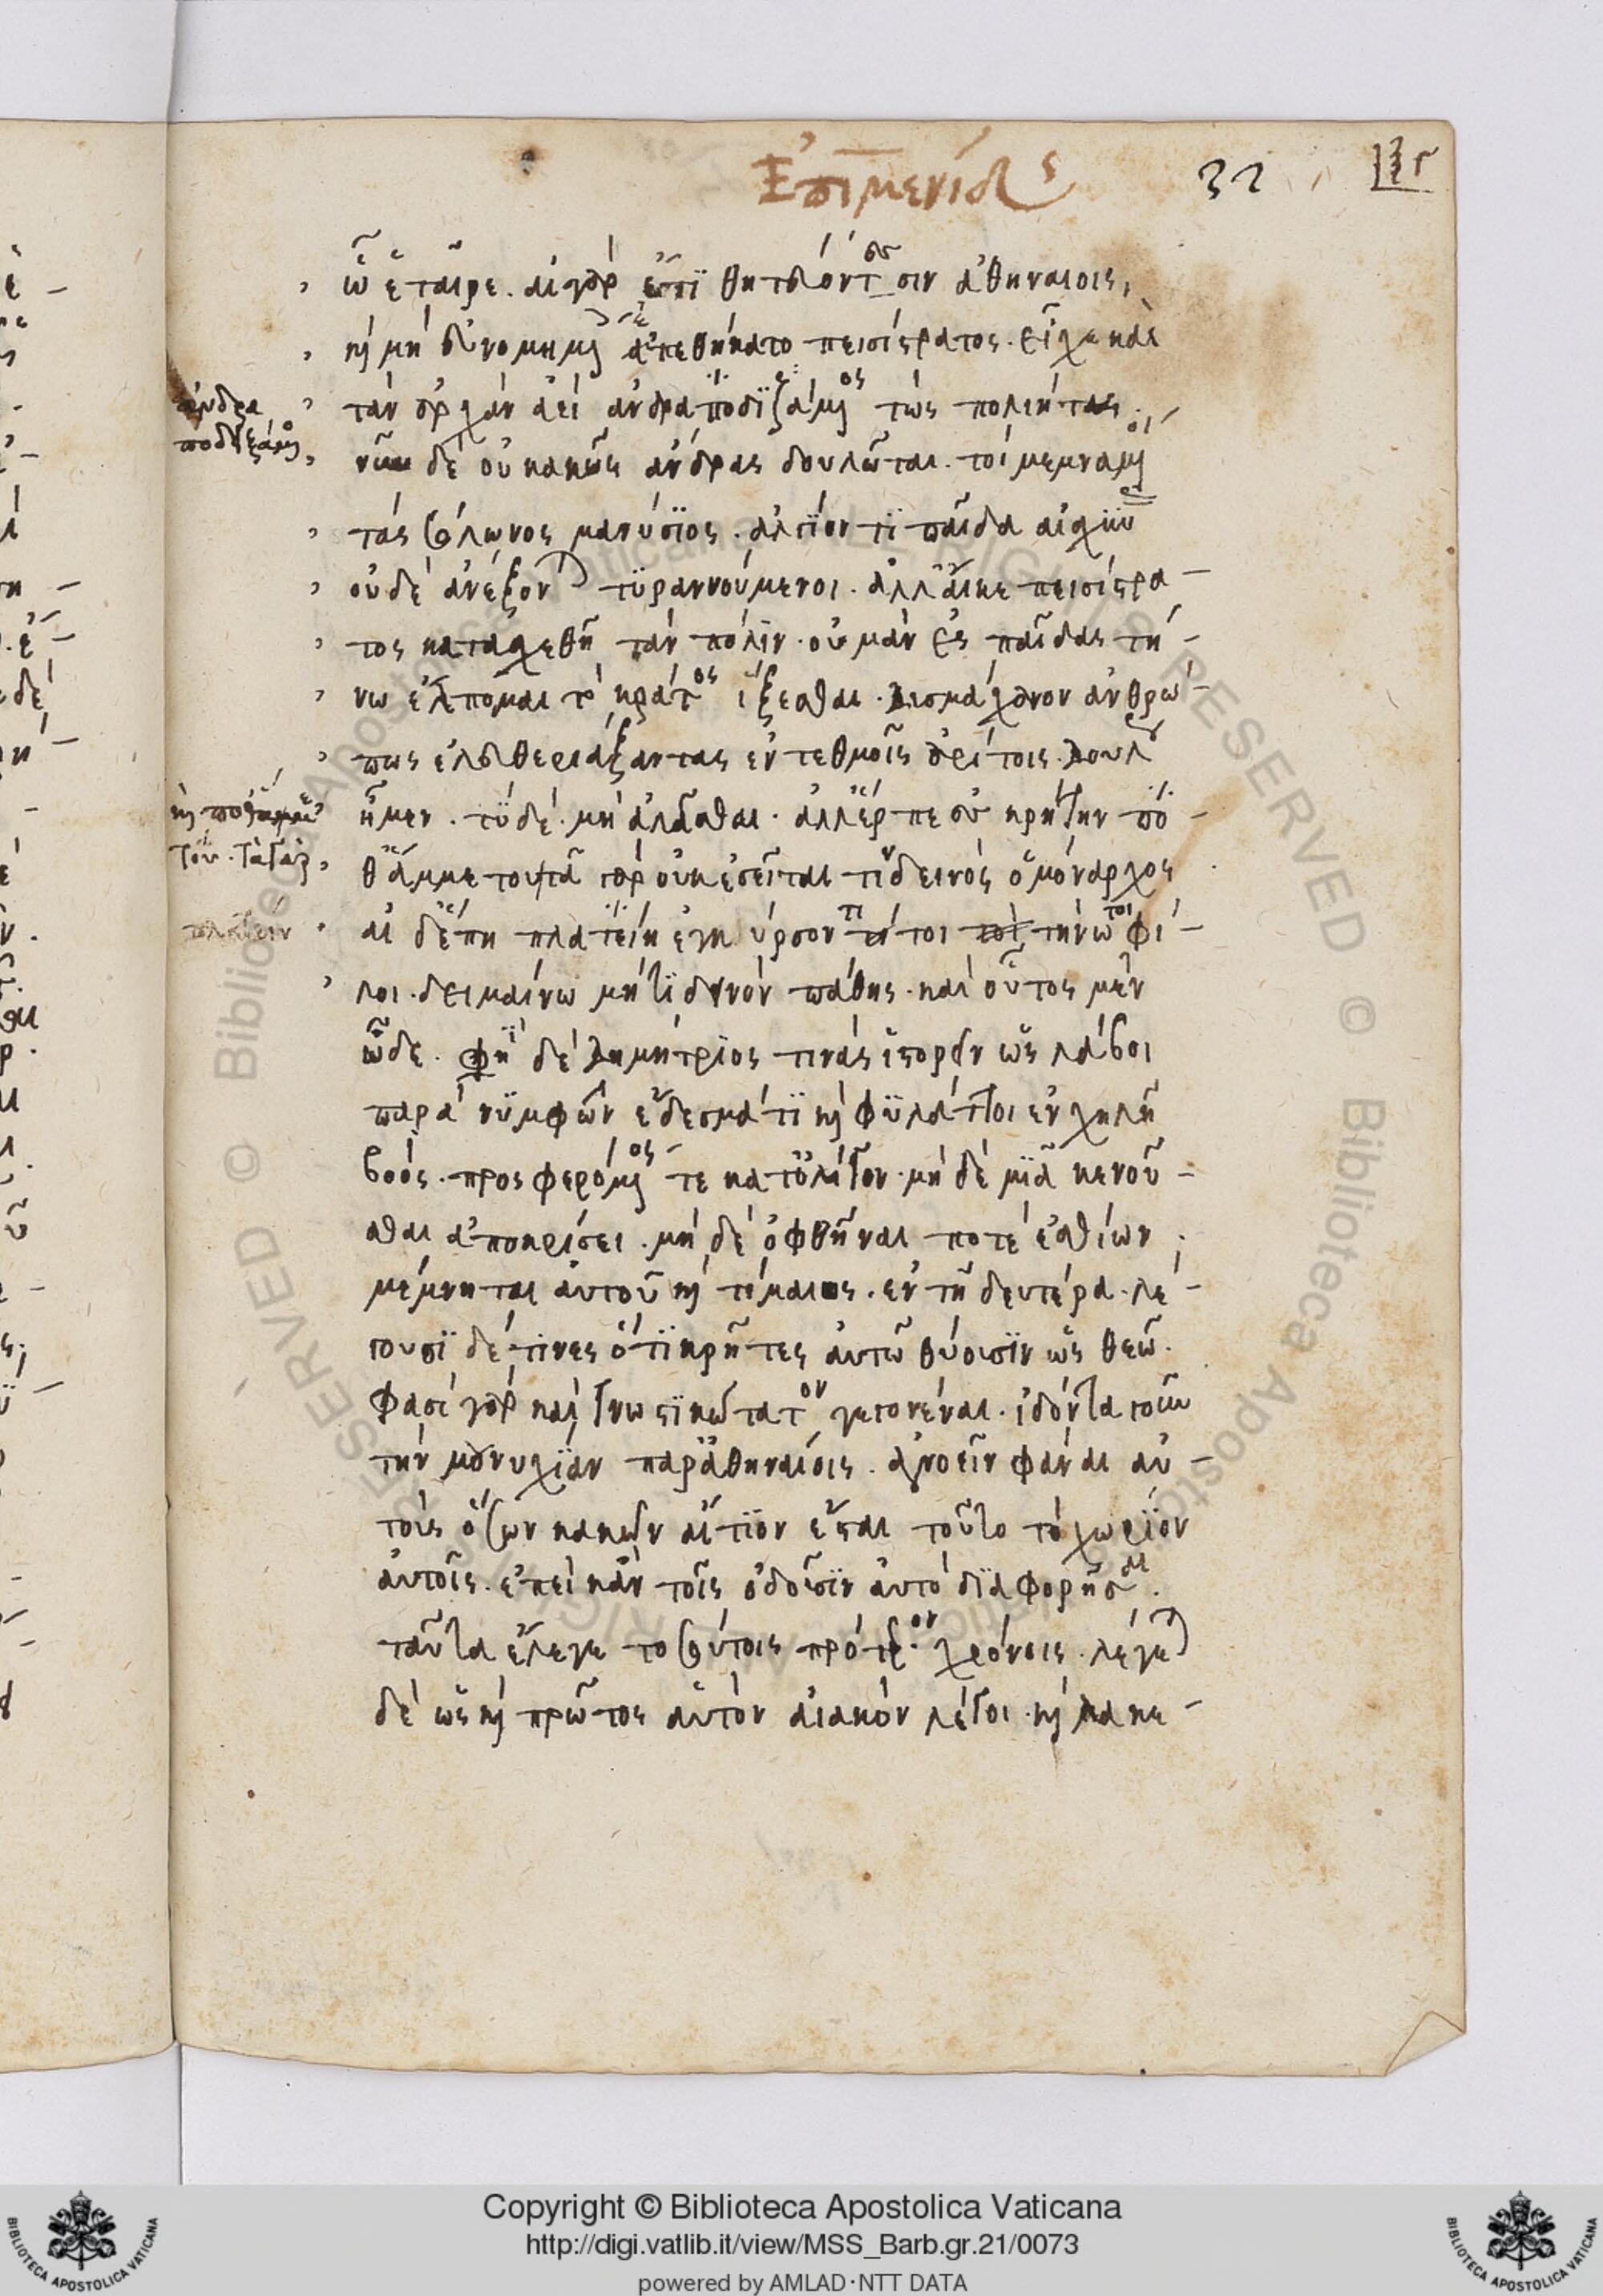 Ἐπιμενίδης
32
ὦ ἑταῖρε. αἰ γὰρ ἔτι θητευόντεσσιν ἀθηναίοις,
καὶ μὴ εὐνομημένοις ἐπεθήκατο πεισίστρατος. εἶχε κα
τὰν ἀρχὰν ἀεὶ ἀνδραποδιζάμενος τὼς πολιήτας.
νῦν δὲ οὐ κακῶς ἄνδρας δουλῶται. τοὶ μεμναμένοι
τᾶς σόλωνος μανύσιος. ἀλγίοντι παῖδα αἰσχύνᾳ
οὐδὲ ἀνέξονται τυραννούμενοι. ἀλλ' αἴκε πεισίστρα-
τος κατασχεθῇ τὰν πόλιν. οὐ μὰν ἐς παῖδας τή-
νω ἔλπομαι τὸ κράτος ἵξεσθαι. δισμάχονον ἀνθρώ-
πως ἐλευθεριάξαντας ἐν τεθμοῖς ἀρίτοις. δούλους
ἦμεν. τὺ δὲ. μὴ ἀλᾶσθαι. ἀλλ' ἕρπε ἐς κρήτην πο-
θ' ἄμμε τουτᾶ γὰρ οὐκ ἐσεῖταί τιν δεινὸς ὁ μόναρχος
αἰ δέ πη πλατείη ἐγκύρσοντί τοι τοὶ τήνω φί-
λοι. δειμαίνω μή τι δεινὸν πάθης. καὶ οὗτος μὲν
ὧδε. φησὶ δὲ Δημήτριος τινὰς ἱστορεῖν ὡς λάβοι
παρὰ νυμφῶν ἔδεσμά τι καὶ φυλάττοι ἐν χηλῇ
βοός. προσφερόμενός τε κατ' ὀλίγον. μηδὲ μιᾷ κενοῦ-
σθαι ἀποκρίσει. μηδὲ ὀφθῆναι ποτὲ ἐσθίων.
μέμνηται αὐτοῦ καὶ τίμαιος. ἐν τῇ δευτέρα. λέ-
γουσι δέ τινες ὅτι κρῆτες αὐτῷ θύουσιν ὡς θεῷ.
φασὶ γὰρ καὶ γνωστικώτατον γεγονέναι. ἰδόντα γοῦν
τὴν μουνυχίαν παρ' ἀθηναίοις. ἀγνοεῖν φάναι αὐ-
τοὺς ὅσων κακῶν αἴτιον ἔσται τοῦτο τὸ χωρίον
αὐτοῖς. ἐπεὶ κἂν τοῖς ὀδοῦσιν αὐτὸ διαφορῆσαι.
ταῦτα ἔλεγε τοσούτοις πρότερον χρόνοις. λέγεται
δὲ ὡς καὶ πρῶτος αὐτὸν αἰακὸν λέγοι. καὶ λακε-
ἀνδρα
ποδιξάμενος
Copyright © Biblioteca Apostolica Vaticana
http://digi.vatlib.it/view/MSS_Barb.gr.21/0073
powered by AMLAD·NTT DATA